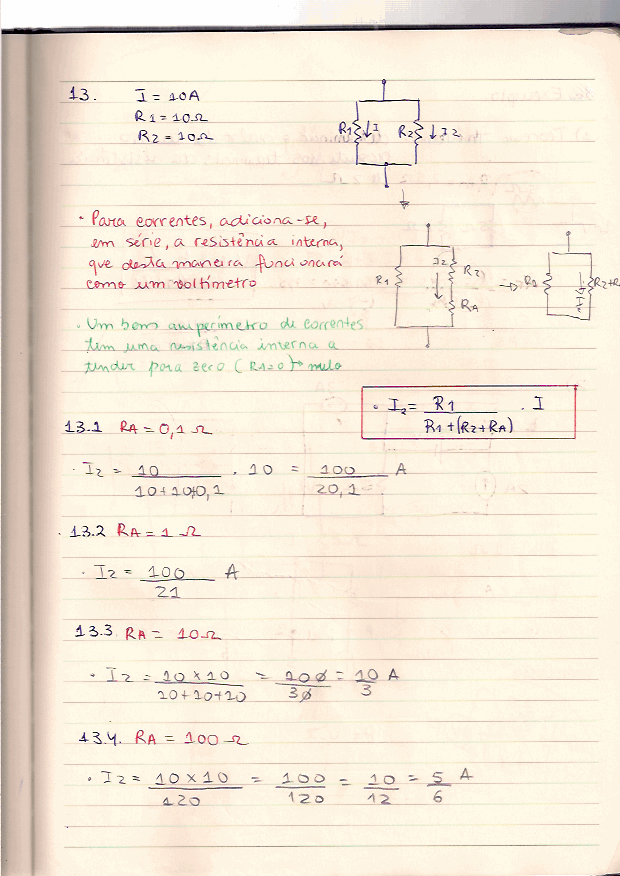 13. I = 10A
R1 = 10Ω
R2 = 10Ω
R1 I R2 I2
• Para correntes, adiciona-se,
em série, a resistência interna,
que desta maneira funcionará
como um voltímetro
R1 I2 R2 RA
R1 R2+RA
• Um bom amperímetro de correntes
tem uma resistência interna a
tender para zero (RA=0)→ nulo
• I2 = R1 / R1+(R2+RA) . I
13.1 RA = 0,1 Ω
• I2 = 10 / 10+10+0,1 . 10 = 100 / 20,1 A
13.2 RA = 1 Ω
• I2 = 100 / 21 A
13.3 RA = 10Ω
• I2 = 10 x 10 / 10+10+10 = 100 / 30 = 10 / 3 A
13.4. RA = 100 Ω
• I2 = 10 x 10 / 120 = 100 / 120 = 10 / 12 = 5 / 6 A